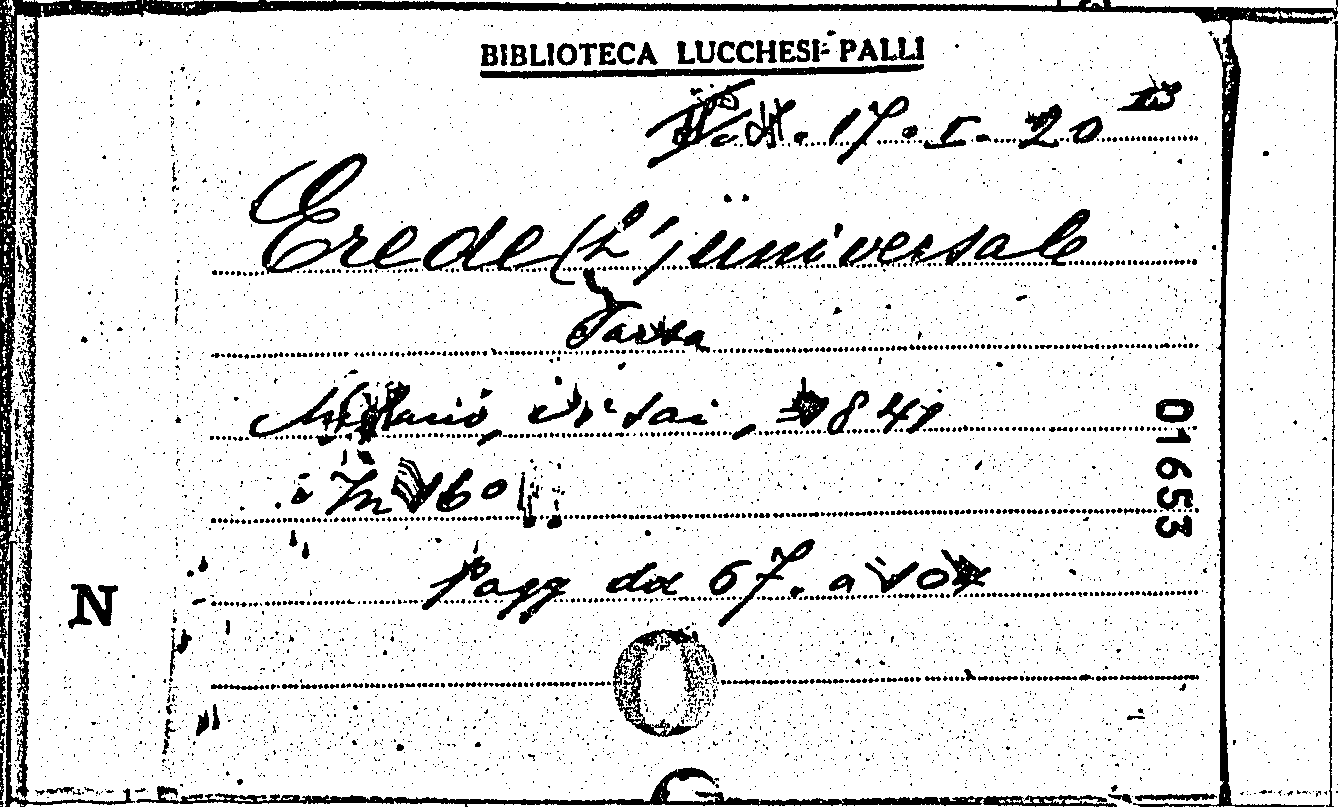 BIBLIOTECA LUCCHESI-PALLI
17. I. 20 13
Erede (L') universale
Farsa
Milano, Visai, 1841
in 160
pagg da 67. a 104
01653
N